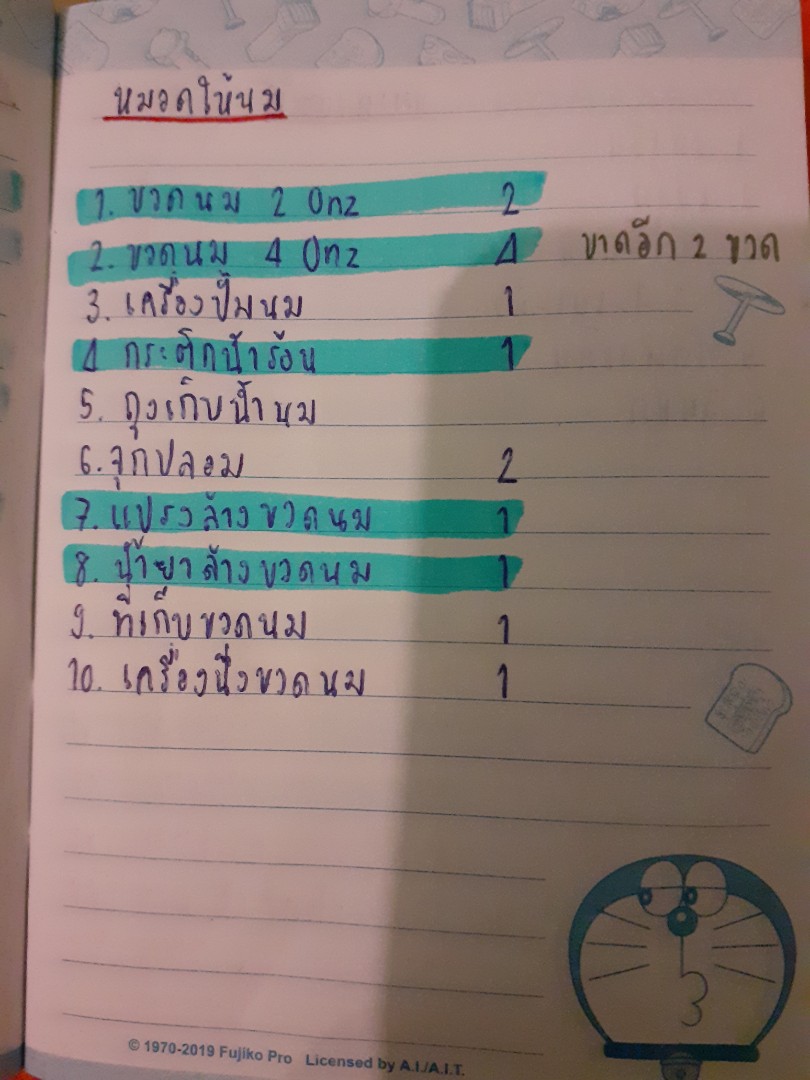 หมวดให้นม
1. ขวดนม 2 Onz 2
2. ขวดนม 4 Onz 4 ขาดอีก 2 ขวด
3. เครื่องปั๊มนม 1
4 กระติกน้ำร้อน 1
5. ถุงเก็บน้ำนม
6. จุกปลอม 2
7. แปรงล้างขวดนม 1
8. น้ำยาล้างขวดนม 1
9. ที่เก็บขวดนม 1
10. เครื่องนึ่งขวดนม 1
© 1970-2019 Fujiko Pro Licensed by A.I./A.I.T.